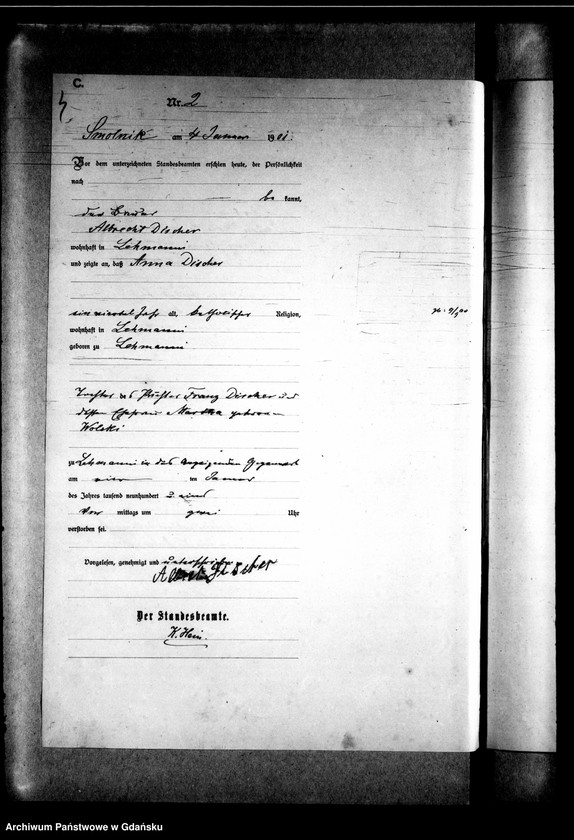 C.
Nr. 2
Smolnik am 4 Januar 1901.
Vor dem unterzeichneten Standesbeamten erschien heute, der Persönlichkeit
nach
be kannt,
der
Albrecht Discher
wohnhaft in Lehmanni
und zeigte an, daß Anna Discher
ein viertel Jahr alt, katholischer Religion,
wohnhaft in Lehmanni
geboren zu Lehmanni
Tochter des Franz Discher und
dessen Ehefrau Martha geborene
Wolski
zu Lehmanni in des Anzeigenden Gegenwart
am vier ten Januar
des Jahres tausend neunhundert und eins
Vor mittags um Uhr
verstorben sei.
Vorgelesen, genehmigt und unterschrieben
Discher
Der Standesbeamte.
K. Hein.
Archiwum Państwowe w Gdańsku